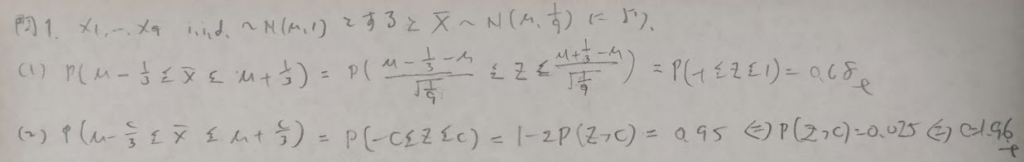 問1. X1,…X9 i,i,d. ~ N(μ,1) とすると X̄ ~ N(μ, 1/9) になり.
(1) P(μ - 1/3 ≤ X̄ ≤ μ + 1/3) = P( (μ - 1/3 - μ)/√(1/9) ≤ Z ≤ (μ + 1/3 - μ)/√(1/9) ) = P(-1 ≤ Z ≤ 1) = 0.68
(2) P(μ - c/3 ≤ X̄ ≤ μ + c/3) = P(-C ≤ Z ≤ C) = 1 - 2P(Z > C) = 0.95 ⇔ P(Z > C) = 0.025 ⇔ C = 1.96